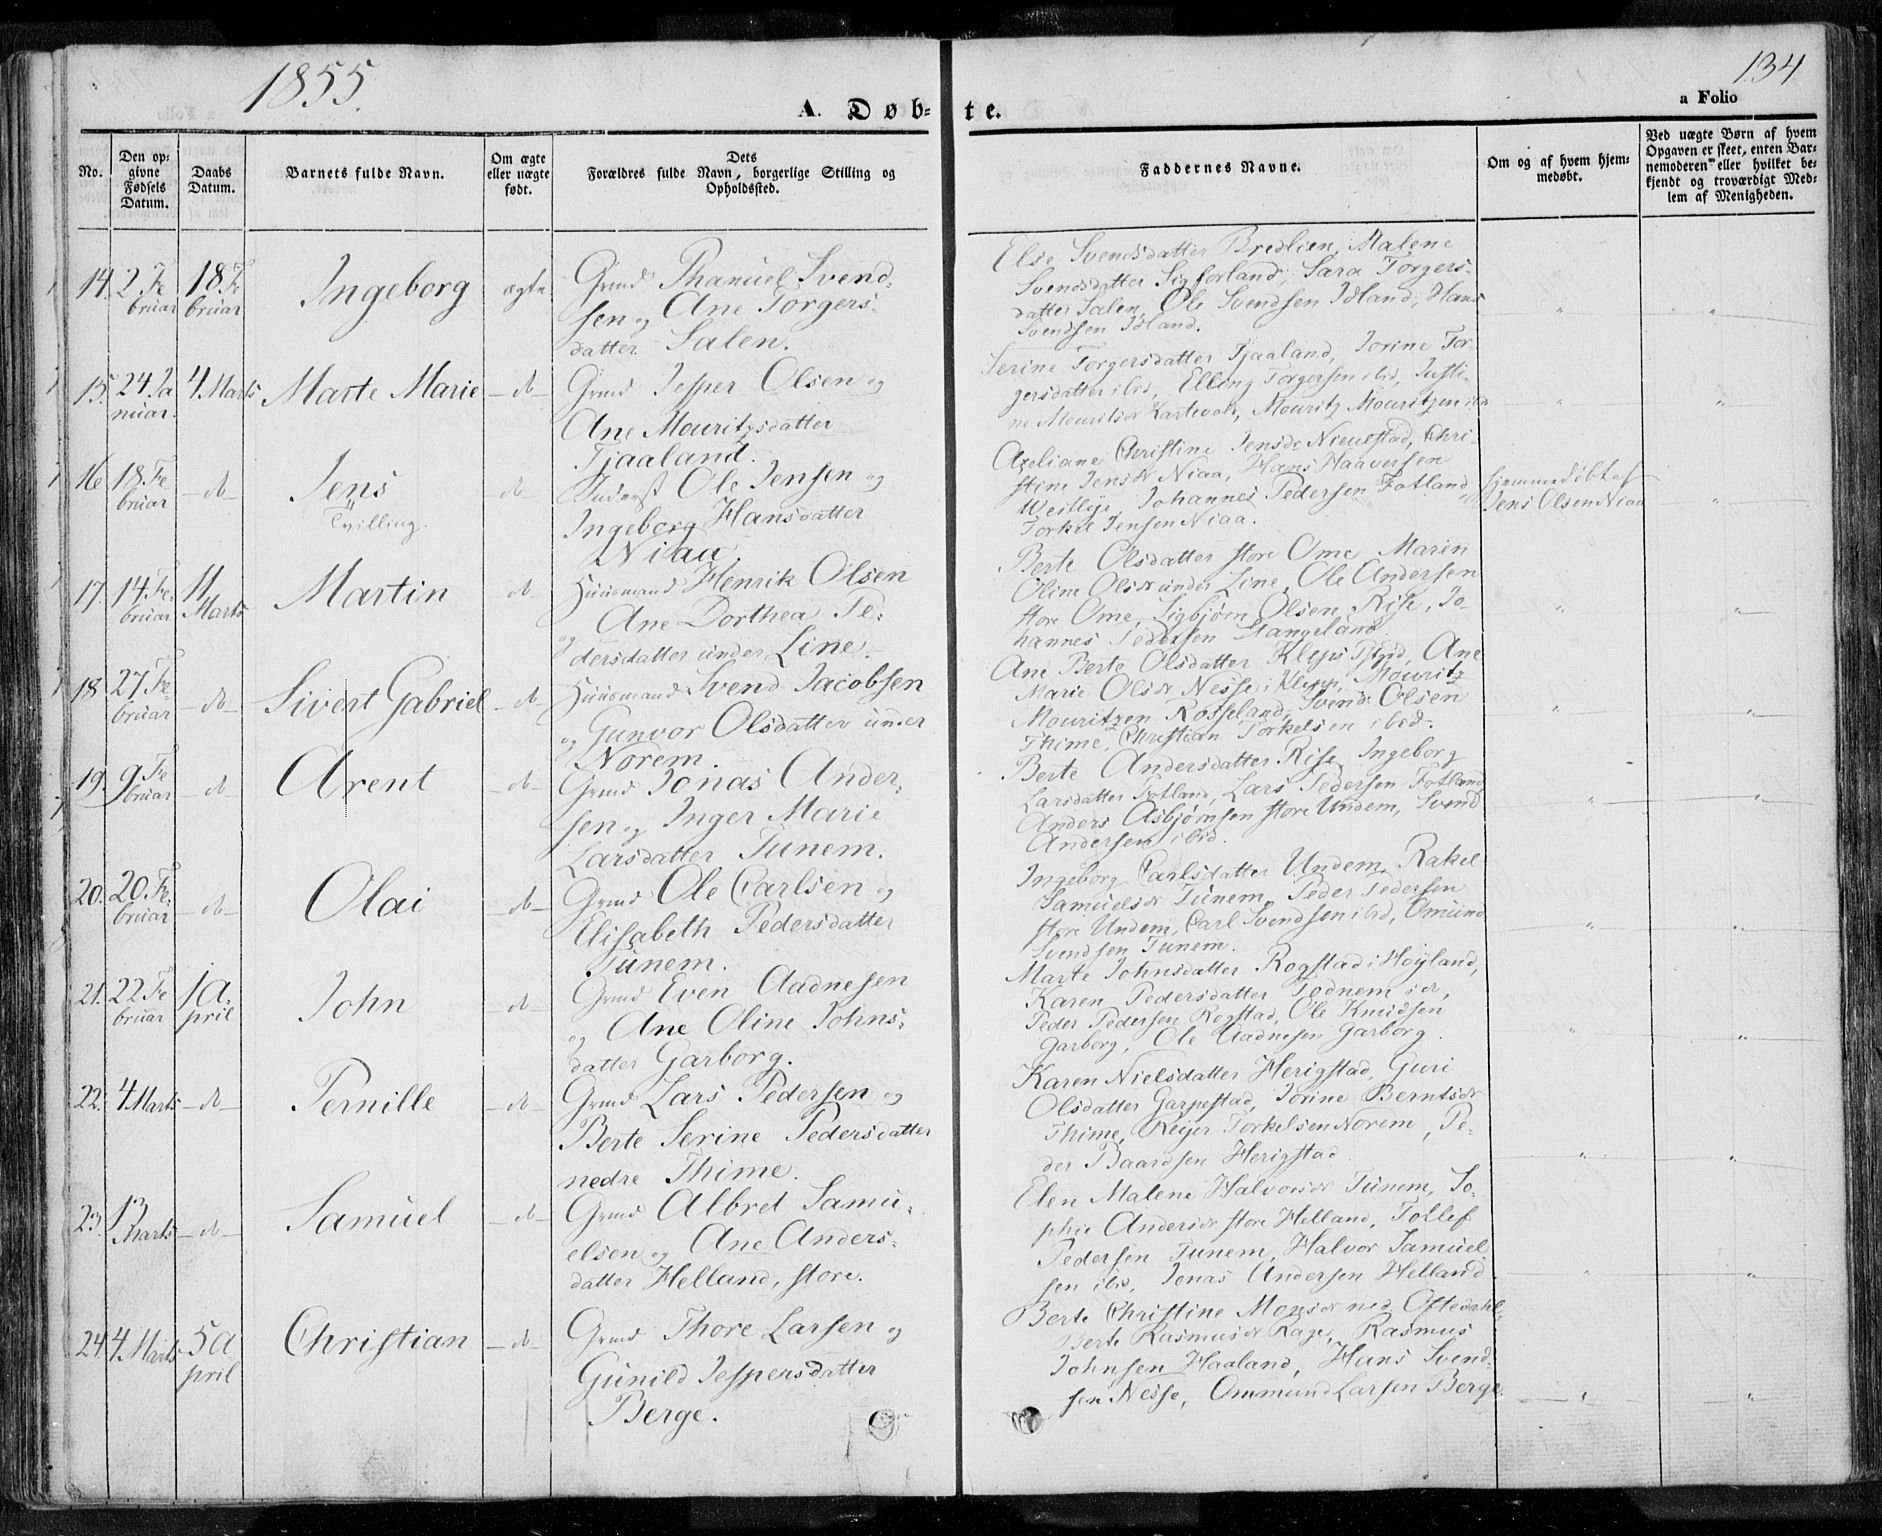 1855.
134
A. Døb=
te.
a Folio
No.
Den op=
givne
Fødsels
Datum.
Daabs
Datum.
Barnets fulde Navn.
Om ægte
eller uægte
født.
Dets
Forældres fulde Navn, borgerlige Stilling og
Opholdssted.
Faddernes Navne.
Om og af hvem hjem=
medøbt.
Ved uægte Børn af hvem
Opgaven er skeet, enten Bar=
nemoderen eller hvilket be=
kjendt og troværdigt Med=
lem af Menigheden.
14. 2 Fe
bruar
18 Fe
bruar
Ingeborg
ægte
Grmd Thanuel Svend=
sen og Ane Torgers=
datter Salen.
Else Svendsdatter Bredlien, Malene
Svendsdatter Sigforland, Sara Torgers=
datter Salen, Ole Svendsen Idland, Hans
Svendsen Idland.
15. 24 Ja
nuar.
4 Marts
Marte Marie
do
Grmd Jesper Olsen og
Ane Mouritzsdatter
Tjaaland.
Serine Torgersdatter Tjaaland, Jorine Tor=
gersdatter ibid, Elling Torgersen ibid, Justi=
ne Mouritsdr Kartevold, Mouritz Mouritzen
16 18 Fe
bruar
do
Jens
Tvilling.
do
Inderst Ole Jensen og
Ingeborg Hansdatter
Niaa.
Axeliane Christine Jensdr Niaa, Chri=
stine Jensdr Niaa, Hans Haaversen
Westlye, Johannes Pedersen Fotland,
Torkel Jensen Niaa.
Hjemmedøbt af
Jens Olsen Niaa
17. 14 Fe=
bruar
11
Marts
Martin
do
Huusmand Henrik Olsen
og Ane Dorthea Pe=
dersdatter under Line.
Berte Olsdatter store Ome, Maren
Oline Olsdr under Line, Ole Andersen
store Ome, Sigbjørn Olsen Rise, Jo=
hannes Pedersen Stangeland.
18 27 Fe
bruar
do
Sivert Gabriel
do
Huusmand Svend Jacobsen
og Gunvor Olsdatter under
Norem.
Ane Berte Olsdatter Klepp Pgjd, Ane
Marie Olsdr Nesse i Klepp, Mouritz
Mouritzen Rosseland, Svend Olsen
Thime, Christian Torkelsen ibid.
19. 9 Fe
bruar
do
Arent
do
Grmd Jonas Ander=
sen og Inger Marie
Larsdatter Tunem.
Berte Andersdatter Rise, Ingeborg
Larsdatter Fotland, Lars Pedersen Fotland,
Anders Asbjørnsen store Undem, Svend
Andersen ibid.
20. 20 Fe=
bruar
do
Olai
do
Grmd Ole Carlsen og
Elisabeth Pedersdatter
Tunem.
Ingeborg Carlsdatter Undem, Rakel
Samuelsdr Tunem, Peder Pedersen
store Undem, Carl Svendsen ibid, Omund
Svendsen Tunem.
21. 22 Fe
bruar
1 A=
pril
John
do
Grmd Even Aadnesen
og Ane Oline Johns=
datter Garborg.
Marte Johnsdatter Rogstad i Høyland,
Karen Pedersdatter Todnem idr,
Peder Pedersen Rogstad, Ole Knudsen
Garborg, Ole Aadnesen Garborg.
22. 4 Marts
do
Pernille
do
Grmd Lars Pedersen og
Berte Serine Pedersdatter
nedre Thime.
Karen Nielsdatter Herigstad, Guri
Olsdatter Garpestad, Jorine Berntsdr
Thime, Reijer Torkelsen Norem, Pe=
der Baardsen Herigstad.
23. 13
Marts
do
Samuel
do
Grmd Albret Samu=
elsen og Ane Anders=
datter Helland, store.
Elen Malene Halvorsdr Tunem, So=
phie Andersdr store Helland, Tollef
Pedersen Tunem, Halvor Samuel
sen ibid, Jonas Andersen Helland
24. 4 Marts
5 A
pril
Christian
do
Grmd Thore Larsen og
Gunild Jespersdatter
Berge.
Berte Christine Monsdr ned. Oftedahl,
Berte Rasmusdr Rage, Rasmus
Johnsen Haaland, Hans Svend=
sen Nesse, Ommund Larsen Berge.